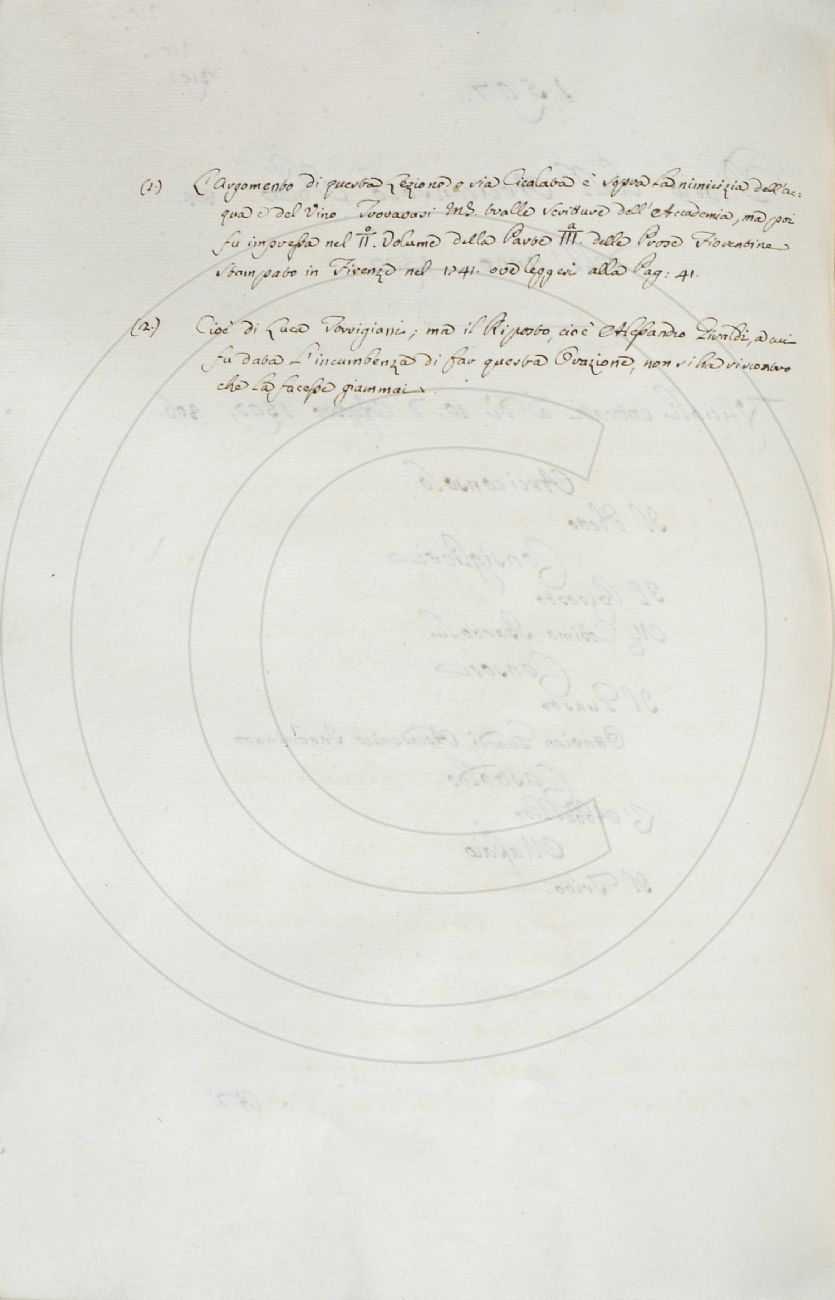 (1.) L'Argomento di questa Lezione o sia Cicalata è sopra La nimicizia dell'ac-
qua e del Vino. Trovavasi MS. tralle scritture dell'Accademia, ma poi
fu impressa nel II.º Volume della Parte III.ª delle Prose Fiorentine
stampato in Firenze nel 1741. ove leggesi alla Pag: 41.
(2.) Cioè di Luca Torrigiani; ma il Riposto, cioè Alessandro Rivaldi, a cui
fu data L'incumbenza di far questa Orazione, non si ha riscontro
che La facesse giammai.